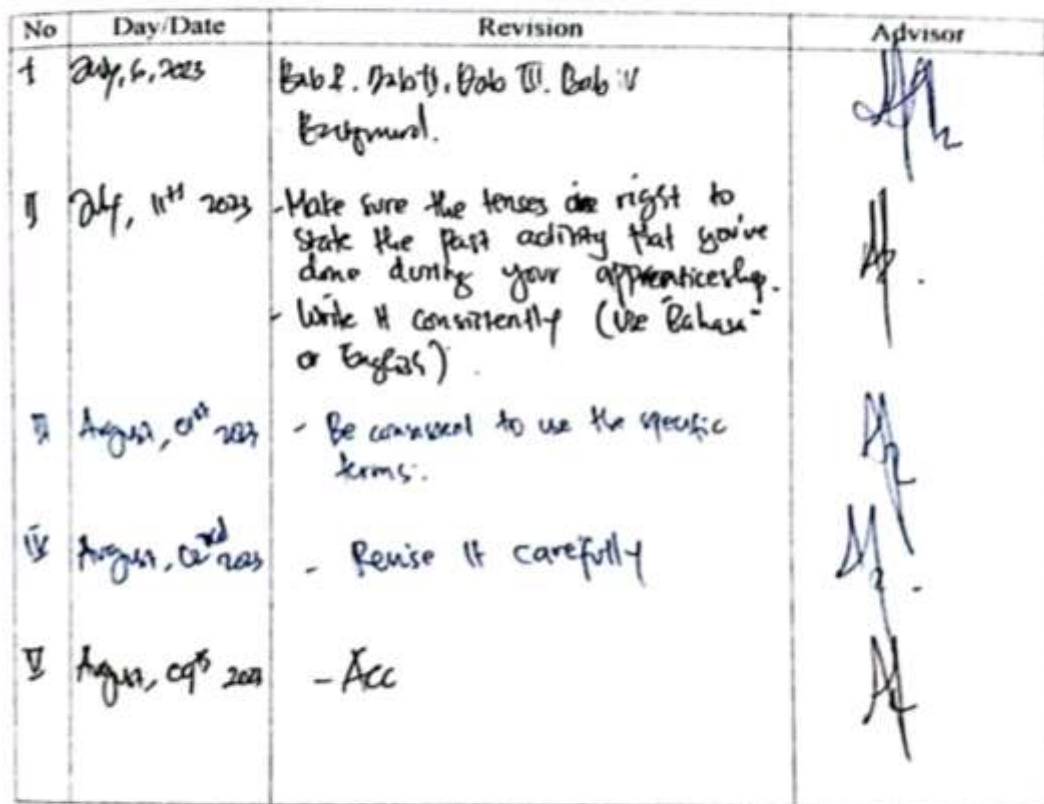 No Day/Date Revision Advisor
I July, 6, 2023 Bab I. Bab II. Bab III. Bab IV
Background.
II July, 11th 2023 - Make sure the tenses are right to
state the past activity that you've
done during your apprenticeship.
- Write it consistently (Use Bahasa
or English).
III August, 01st 2023 - Be consistent to use the specific
terms.
IV August, 02nd 2023 - Revise it carefully
V August, 09th 2023 - Acc